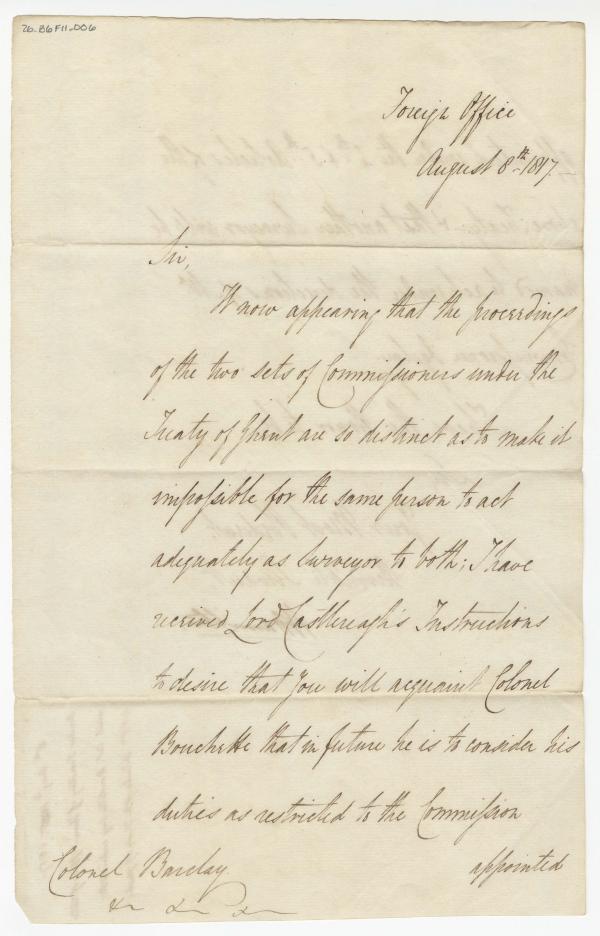 26-B6F11-006
Foreign Office
August 8th 1817.
Sir,
It now appearing that the proceedings
of the two sets of Commissioners under the
Treaty of Ghent are so distinct as to make it
impossible for the same person to act
adequately as Surveyor to both; I have
received Lord Castlereagh's Instructions
to desire that you will acquaint Colonel
Bouchette that in future he is to consider his
duties as restricted to the Commission
appointed
Colonel Barclay
&c &c &c